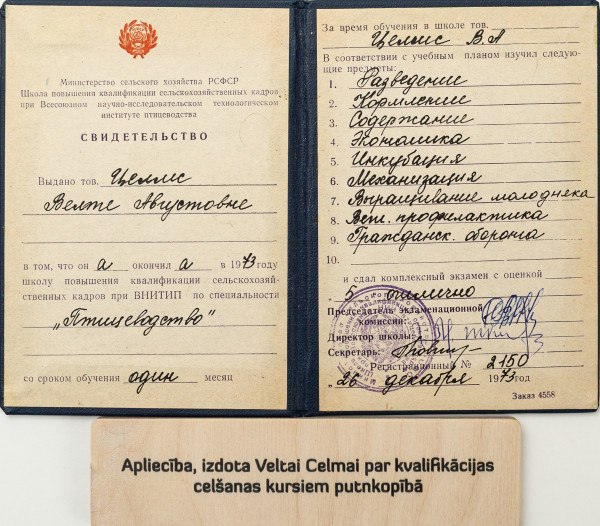 Министерство сельского хозяйства РСФСР
Школа повышения квалификации сельскохозяйственных кадров
при Всесоюзном научно-исследовательском технологическом
институте птицеводства
СВИДЕТЕЛЬСТВО
Выдано тов. Целмс
Велте Августовне
в том, что он а окончил а в 1973 году
школу повышения квалификации сельскохозяй-
ственных кадров при ВНИТИП по специальности
„Птицеводство"
со сроком обучения один месяц
За время обучения в школе тов.
Целмс В.А
В соответствии с учебным планом изучил следую-
щие предметы:
1. Разведение
2. Кормление
3. Содержание
4. Экономика
5. Инкубация
6. Механизация
7. Выращивание молодняка
8. Вет. профилактика
9. Гражданск. оборона
10.
и сдал комплексный экзамен с оценкой
5 отлично
Председатель экзаменационной
комиссии:
Директор школы
Секретарь:
Регистрационный № 2150
„26 декабря 1973 год
Заказ 4558
Apliecība, izdota Veltai Celmai par kvalifikācijas
celšanas kursiem putnkopībā